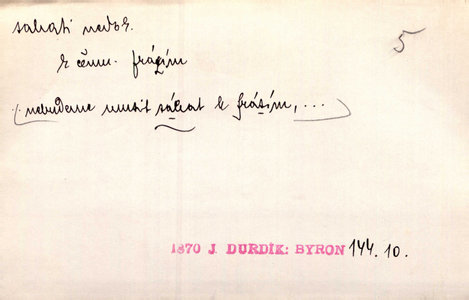 sahati nedok.
5
k čemu. frázím
(nebudeme musit sáhat k frázím, ...)
1870 J. DURDÍK: BYRON 144. 10.